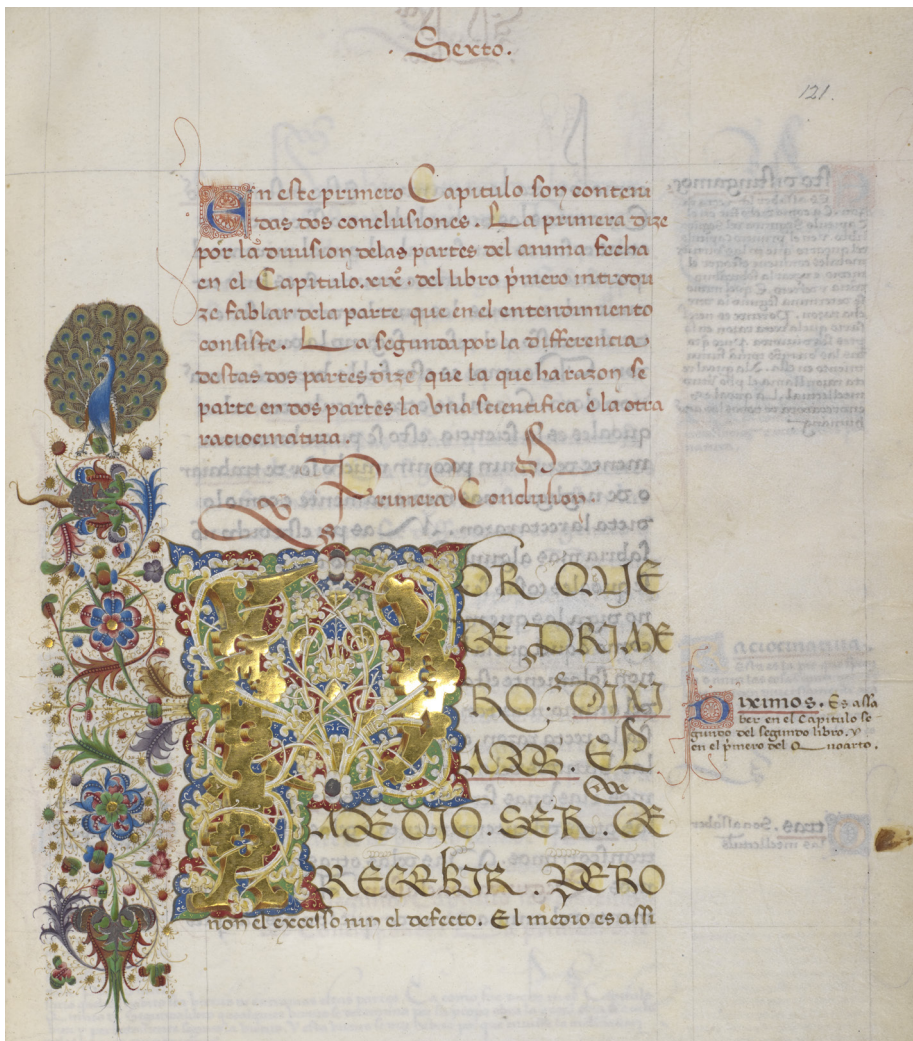 . Sexto.
121.
En este primero Capitulo son conteni
das dos conclusiones. La primera dize
por la diuision delas partes del anima fecha
en el Capitulo.xix̊. del libro p̃mero introdu
ze fablar dela parte que en el entendimiento
consiste. La segunda por la differencia
destas dos partes dize que la que ha razon se
parte en dos partes la vna scientifica e la otra
raciocinatiua.
Primera Conclusion
POR QUE
DE PRIME
RO; DIXI
MOS. EL
que
MEDIO SER. DE
RECEBIR. PERO
non el excesso nin el defecto. El medio es assi
Diximos. Es assa
ber en el Capitulo se
gundo del segundo libro. y
en el p̃mero del Quarto.